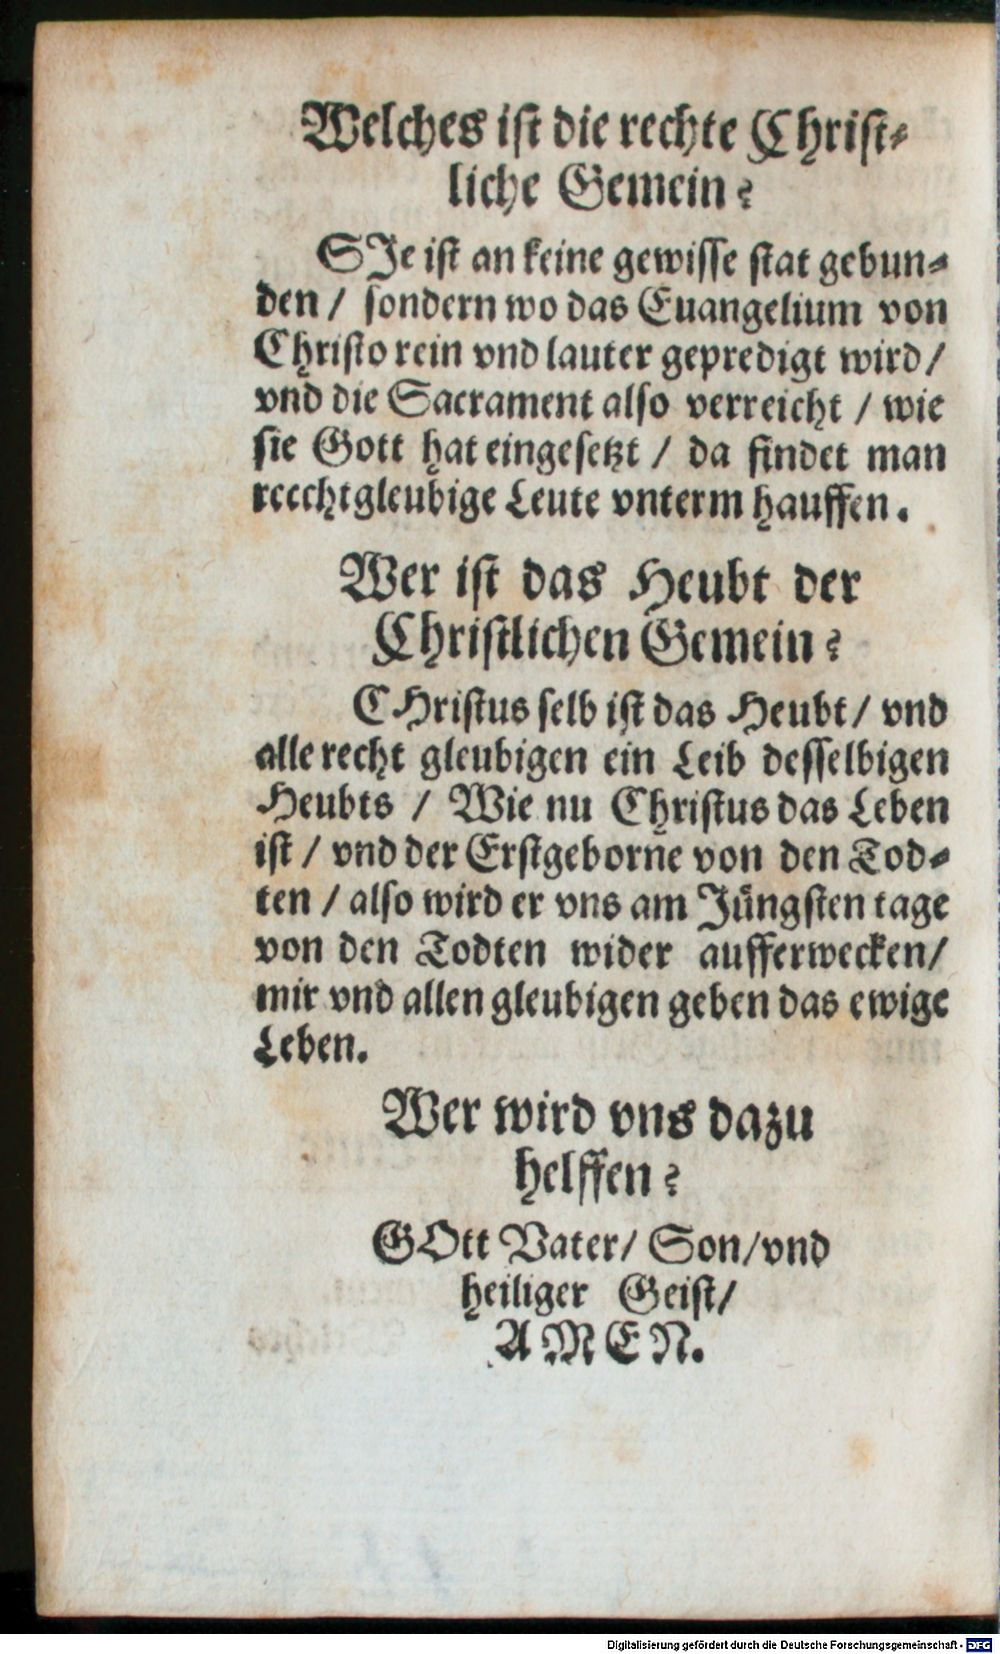 Welches ist die rechte Christ⸗
liche Gemein?
SJe ist an keine gewisse stat gebun⸗
den / sondern wo das Euangelium von
Christo rein vnd lauter gepredigt wird /
vnd die Sacrament also verreicht / wie
sie Gott hat eingesetzt / da findet man
reechtgleubige Leute vnterm hauffen.
Wer ist das Heubt der
Christlichen Gemein?
CHristus selb ist das Heubt / vnd
alle recht gleubigen ein Leib desselbigen
Heubts / Wie nu Christus das Leben
ist / vnd der Erstgeborne von den Tod⸗
ten / also wird er vns am Jüngsten tage
von den Todten wider aufferwecken /
mir vnd allen gleubigen geben das ewige
Leben.
Wer wird vns dazu
helffen?
GOtt Vater / Son / vnd
heiliger Geist /
AMEN.
Digitalisierung gefördert durch die Deutsche Forschungsgemeinschaft - DFG